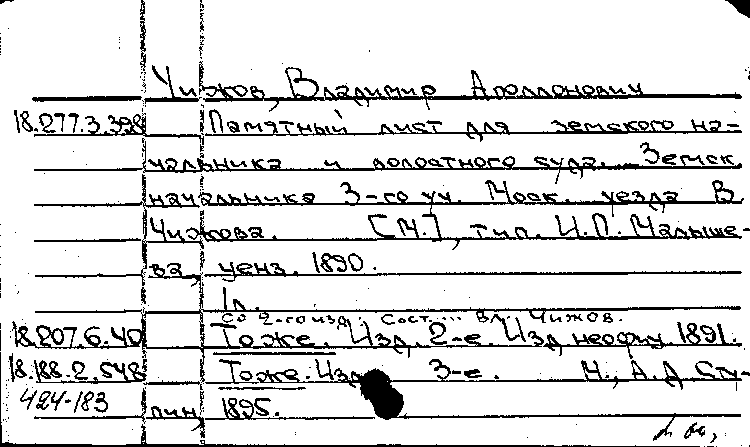 Чижов, Владимир Аполлонович
18.277.3.398 Памятный лист для земского на-
чальника и волостного суда. Земск.
начальника 3-го уч. Моск. уезда В.
Чижова. [М.], тип. И.П. Малыше-
ва, ценз. 1890.
1л.
со 2-го изд. Сост.... Вл. Чижов.
18.207.6.40 Тоже. Изд. 2-е. Изд. неофиц. 1891.
18.188.2.548 Тоже. Изд. 3-е. М., А.Д. Сту-
424-183 пин, 1895.